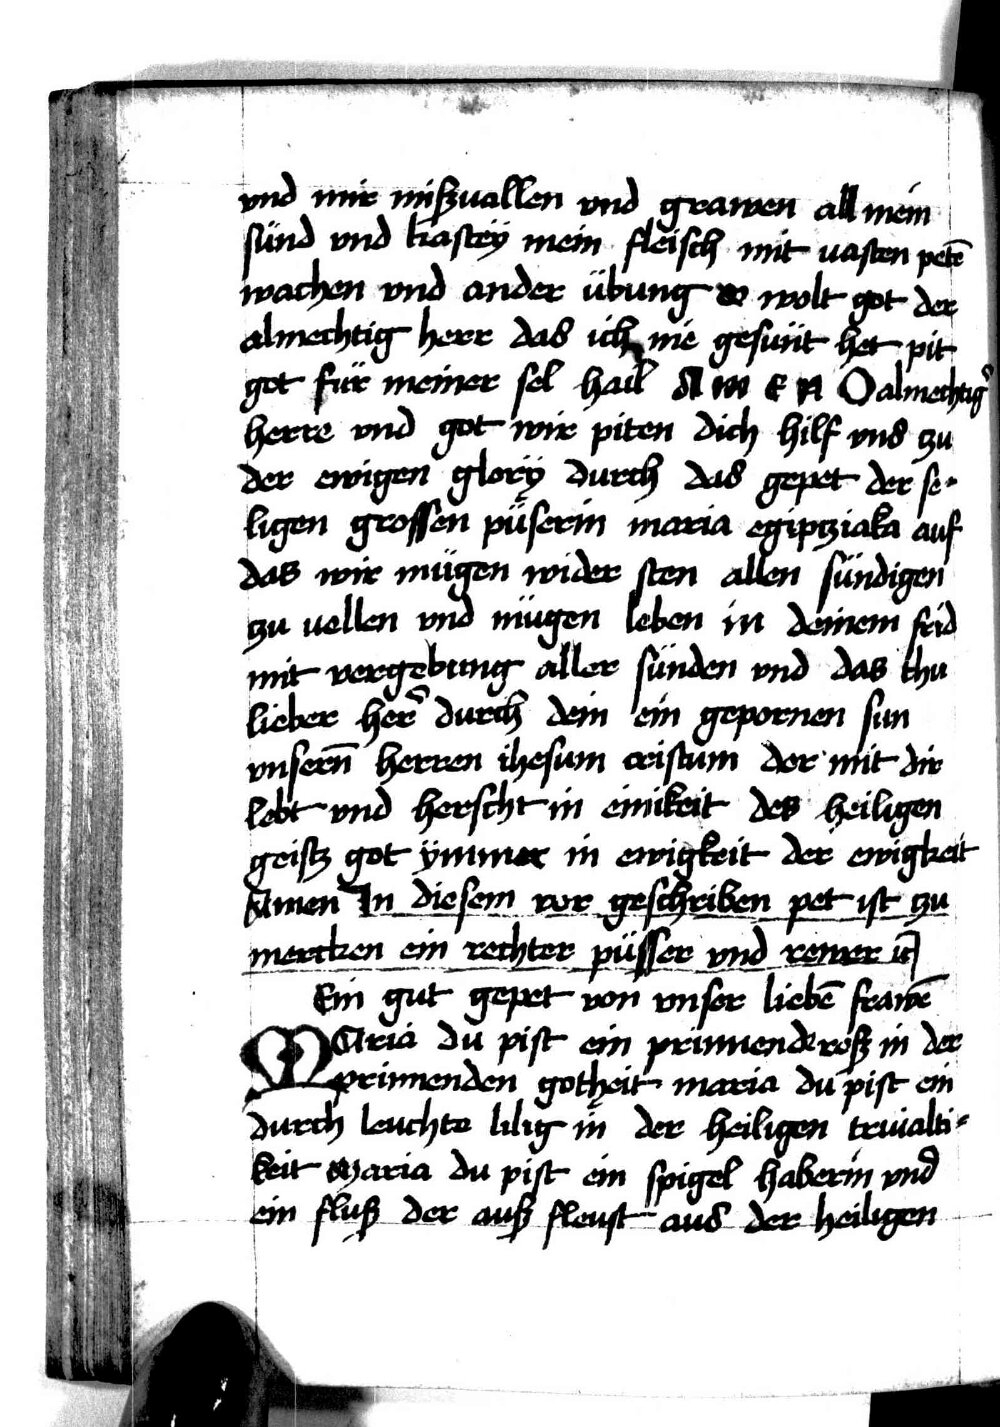 vnd mir mißuallen vnd grawen all mein
sünd vnd kastey mein fleisch mit uasten petē
wachen vnd ander übung wolt got der
almechtig herr das ich nie gesünt het pit
got für meiner sel hail AMEN O almechtigʼ
herre vnd got wir piten dich hilf vns zu
der ewigen glorÿ durch das gepet der se-
ligen grossen püserin maria egipziaka auf
das wir mügen wider sten allen sündigen
zu uellen vnd mügen leben in deinem frid
mit vergebung aller sünden vnd das thu
lieber herʼ durch dein ein gepornen sun
vnsern̄ herren ihesum cristum der mit dir
lebt vnd herscht in einikeit des heiligen
geistz got ÿmmer in ewigkeit der ewigkeit
Amen In diesem vor geschriben pet ist zu
mercken ein rechter püsser vnd rewer
Ein gut gepet von vnser liebē frawē
MAria du pist ein prinnende roß in der
prinnenden gotheit maria du pist ein
durch leuchte lilig in der heiligen triualti-
keit Maria du pist ein spigel haberin vnd
ein fluß der auß fleust aus der heiligen